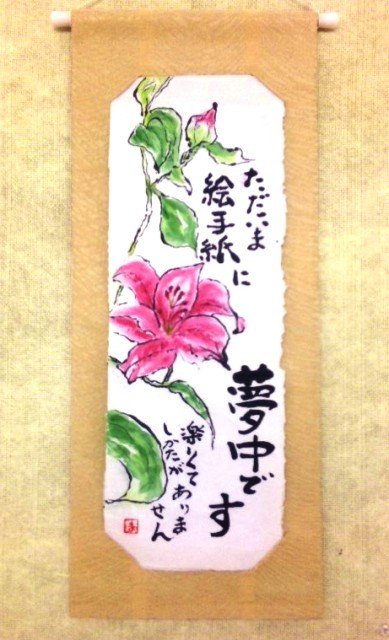 ただいま
絵手紙に
夢中です
楽しくて
しかたが
ありま
せん